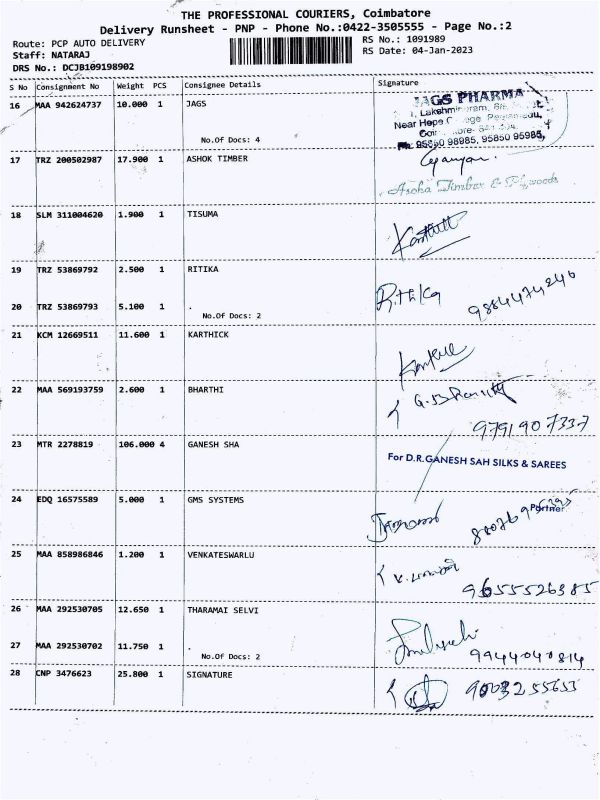 THE PROFESSIONAL COURIERS, Coimbatore
Delivery Runsheet - PNP - Phone No.:0422-3505555 - Page No.:2
Route: PCP AUTO DELIVERY
RS No.: 1091989
Staff: NATARAJ
RS Date: 04-Jan-2023
DRS No.: DCJB109198902
S No Consignment No Weight PCS Consignee Details Signature
16 MAA 942624737 10.000 1 JAGS
JAGS PHARMA
Near Hope
No.Of Docs: 4
Ph: 95850 98985, 95850 95985,
17 TRZ 200502987 17.900 1 ASHOK TIMBER
Asoka Timber & Plywoods
18 SLM 311004620 1.900 1 TISUMA
19 TRZ 53869792 2.500 1 RITIKA
Rithika 9884474246
20 TRZ 53869793 5.100 1 .
No.Of Docs: 2
21 KCM 12669511 11.600 1 KARTHICK
22 MAA 569193759 2.600 1 BHARTHI
9791907337
23 MTR 2278819 106.000 4 GANESH SHA
For D.R.GANESH SAH SILKS & SAREES
24 EDQ 16575589 5.000 1 GMS SYSTEMS
Partner
25 MAA 858986846 1.200 1 VENKATESWARLU
9655526385
26 MAA 292530705 12.650 1 THARAMAI SELVI
27 MAA 292530702 11.750 1 .
No.Of Docs: 2
9944040814
28 CNP 3476623 25.800 1 SIGNATURE
9003255653